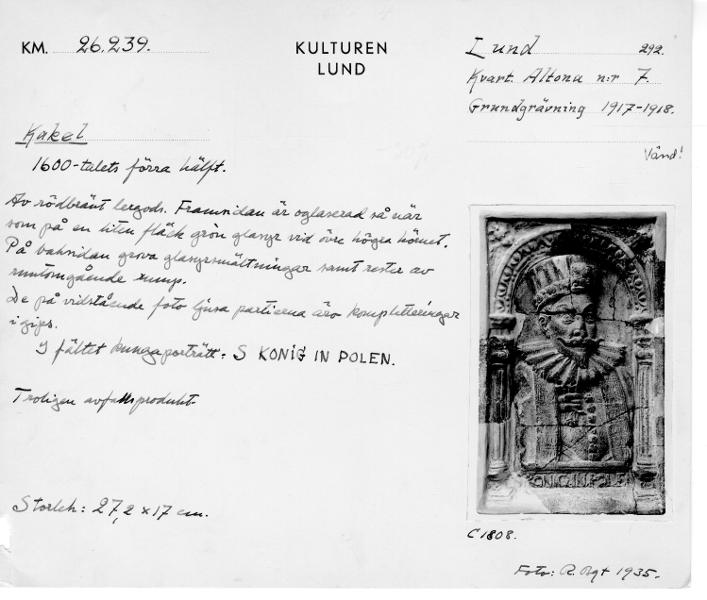 KM. 26.239.
KULTUREN
LUND
Lund 292.
Kvart. Altona n:r 7.
Grundgrävning 1917-1918.
Vänd!
Kakel
1600-talets förra hälft.
Av rödbränt lergods. Framsidan är oglaserad så när
som på en liten fläck grön glasyr vid övre högra hörnet.
På baksidan grova glasyrsmältningar samt rester av
runtomgående rump.
De på vidstående foto ljusa partierna äro kompletteringar
i gips.
I fältet kungaporträtt: S KONIG IN POLEN.
Troligen avfallsprodukt
Storlek: 27,2 x 17 cm.
KONIG.IN.POLEN
C 1808.
Foto: R. 1935.